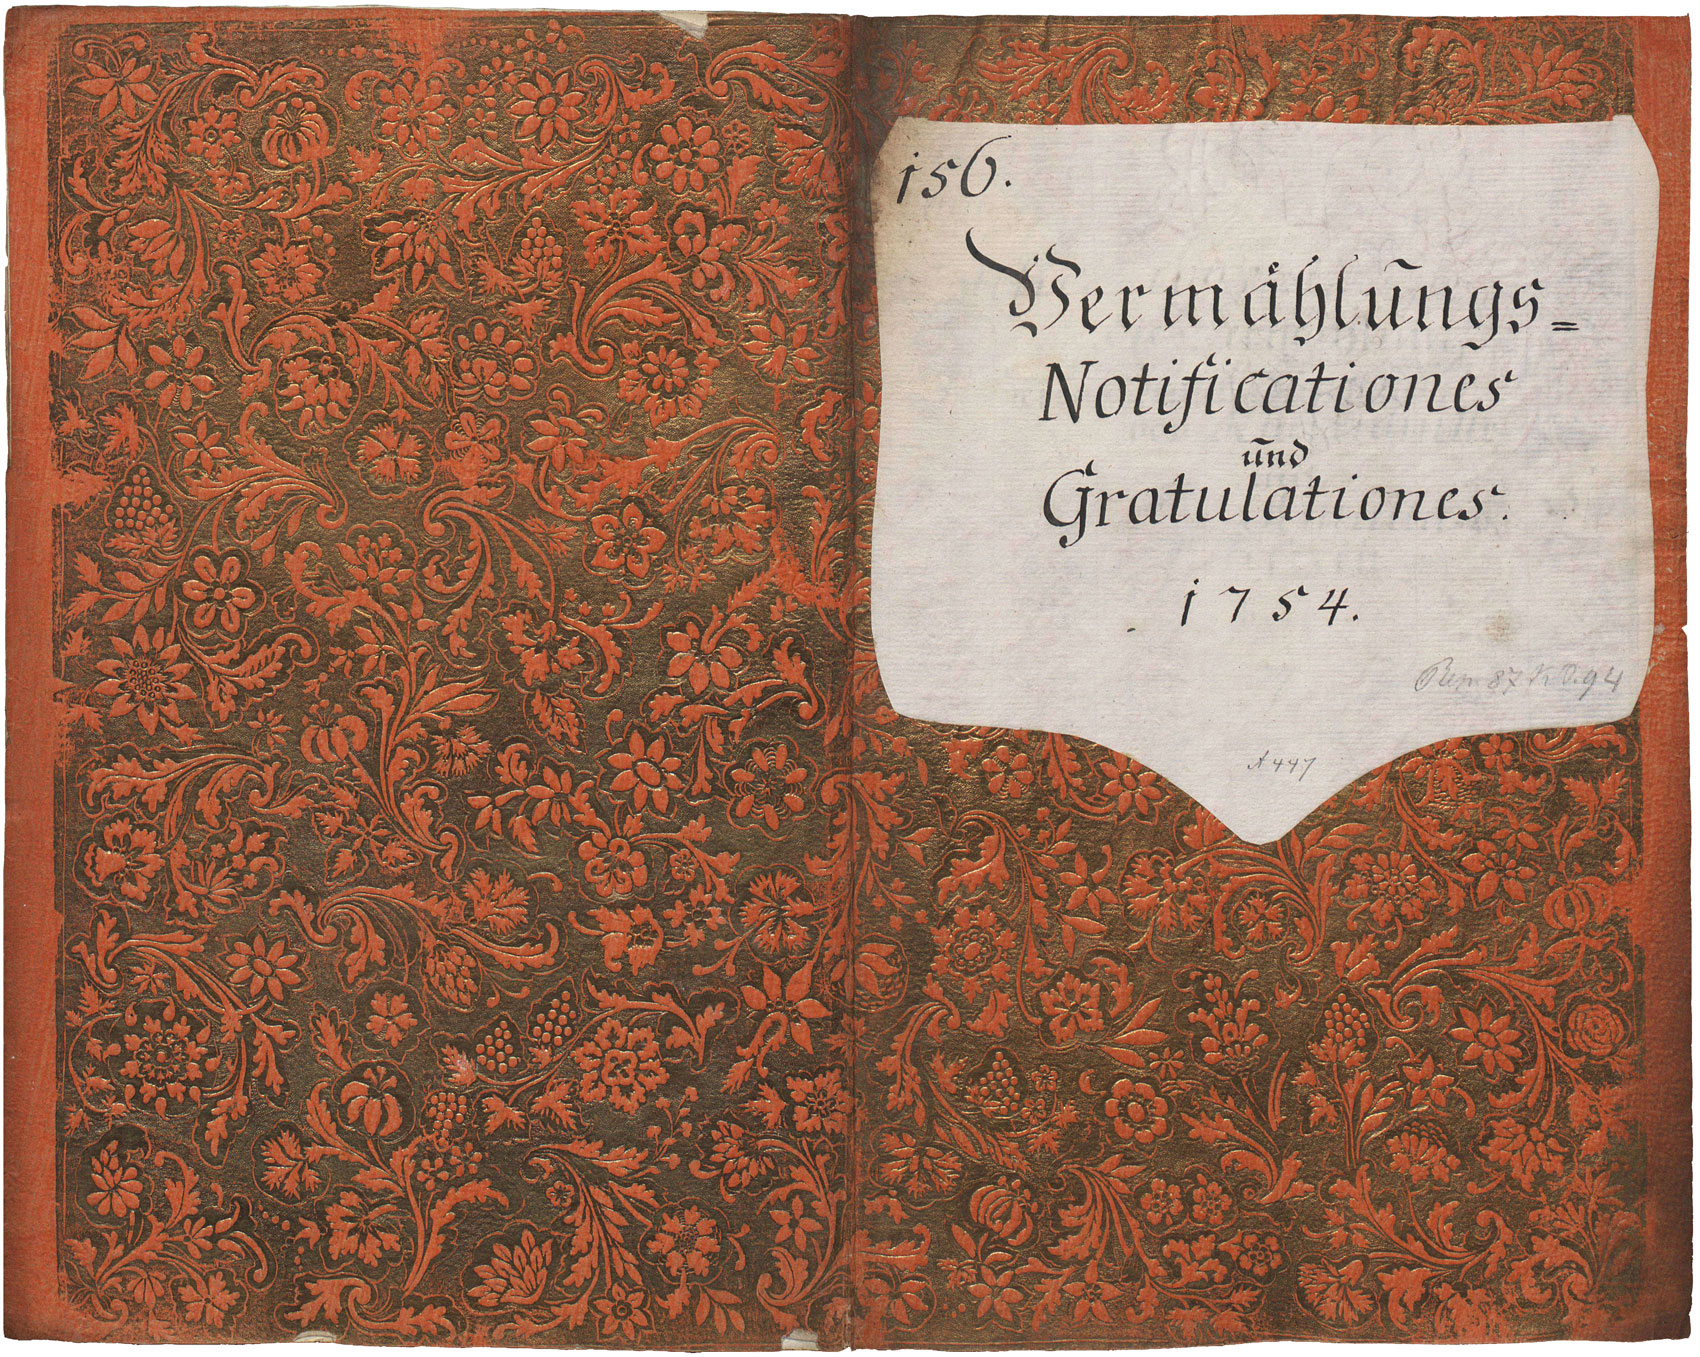 156.
Vermåhlūngs=
Notificationes
ūnd
Gratulationes.
1754.
87 94
A 447